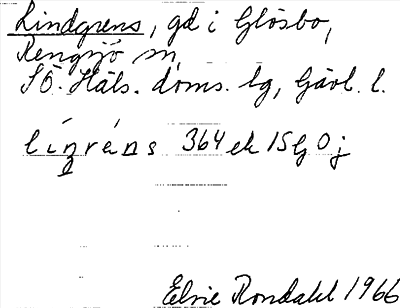 Lindgrens, gd i Glösbo,
Rengsjö sn,
SÖ. Häls. doms. lg, Gävl. l.
línréns 364 ek 15G0j
Elsie Rondahl 1966